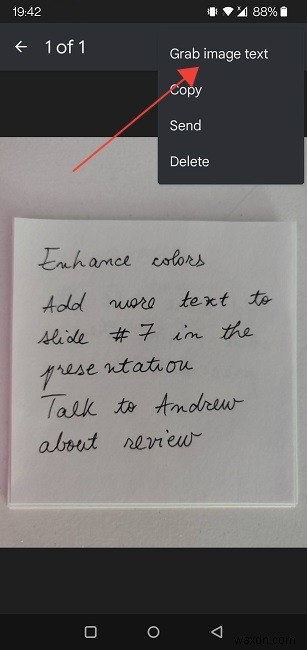 19:42
88%
1 of 1
Grab image text
Copy
Send
Delete
Enhance colors
Add more text to
slide #7 in the
presentation
Talk to Andrew
about review
wsxdn.com